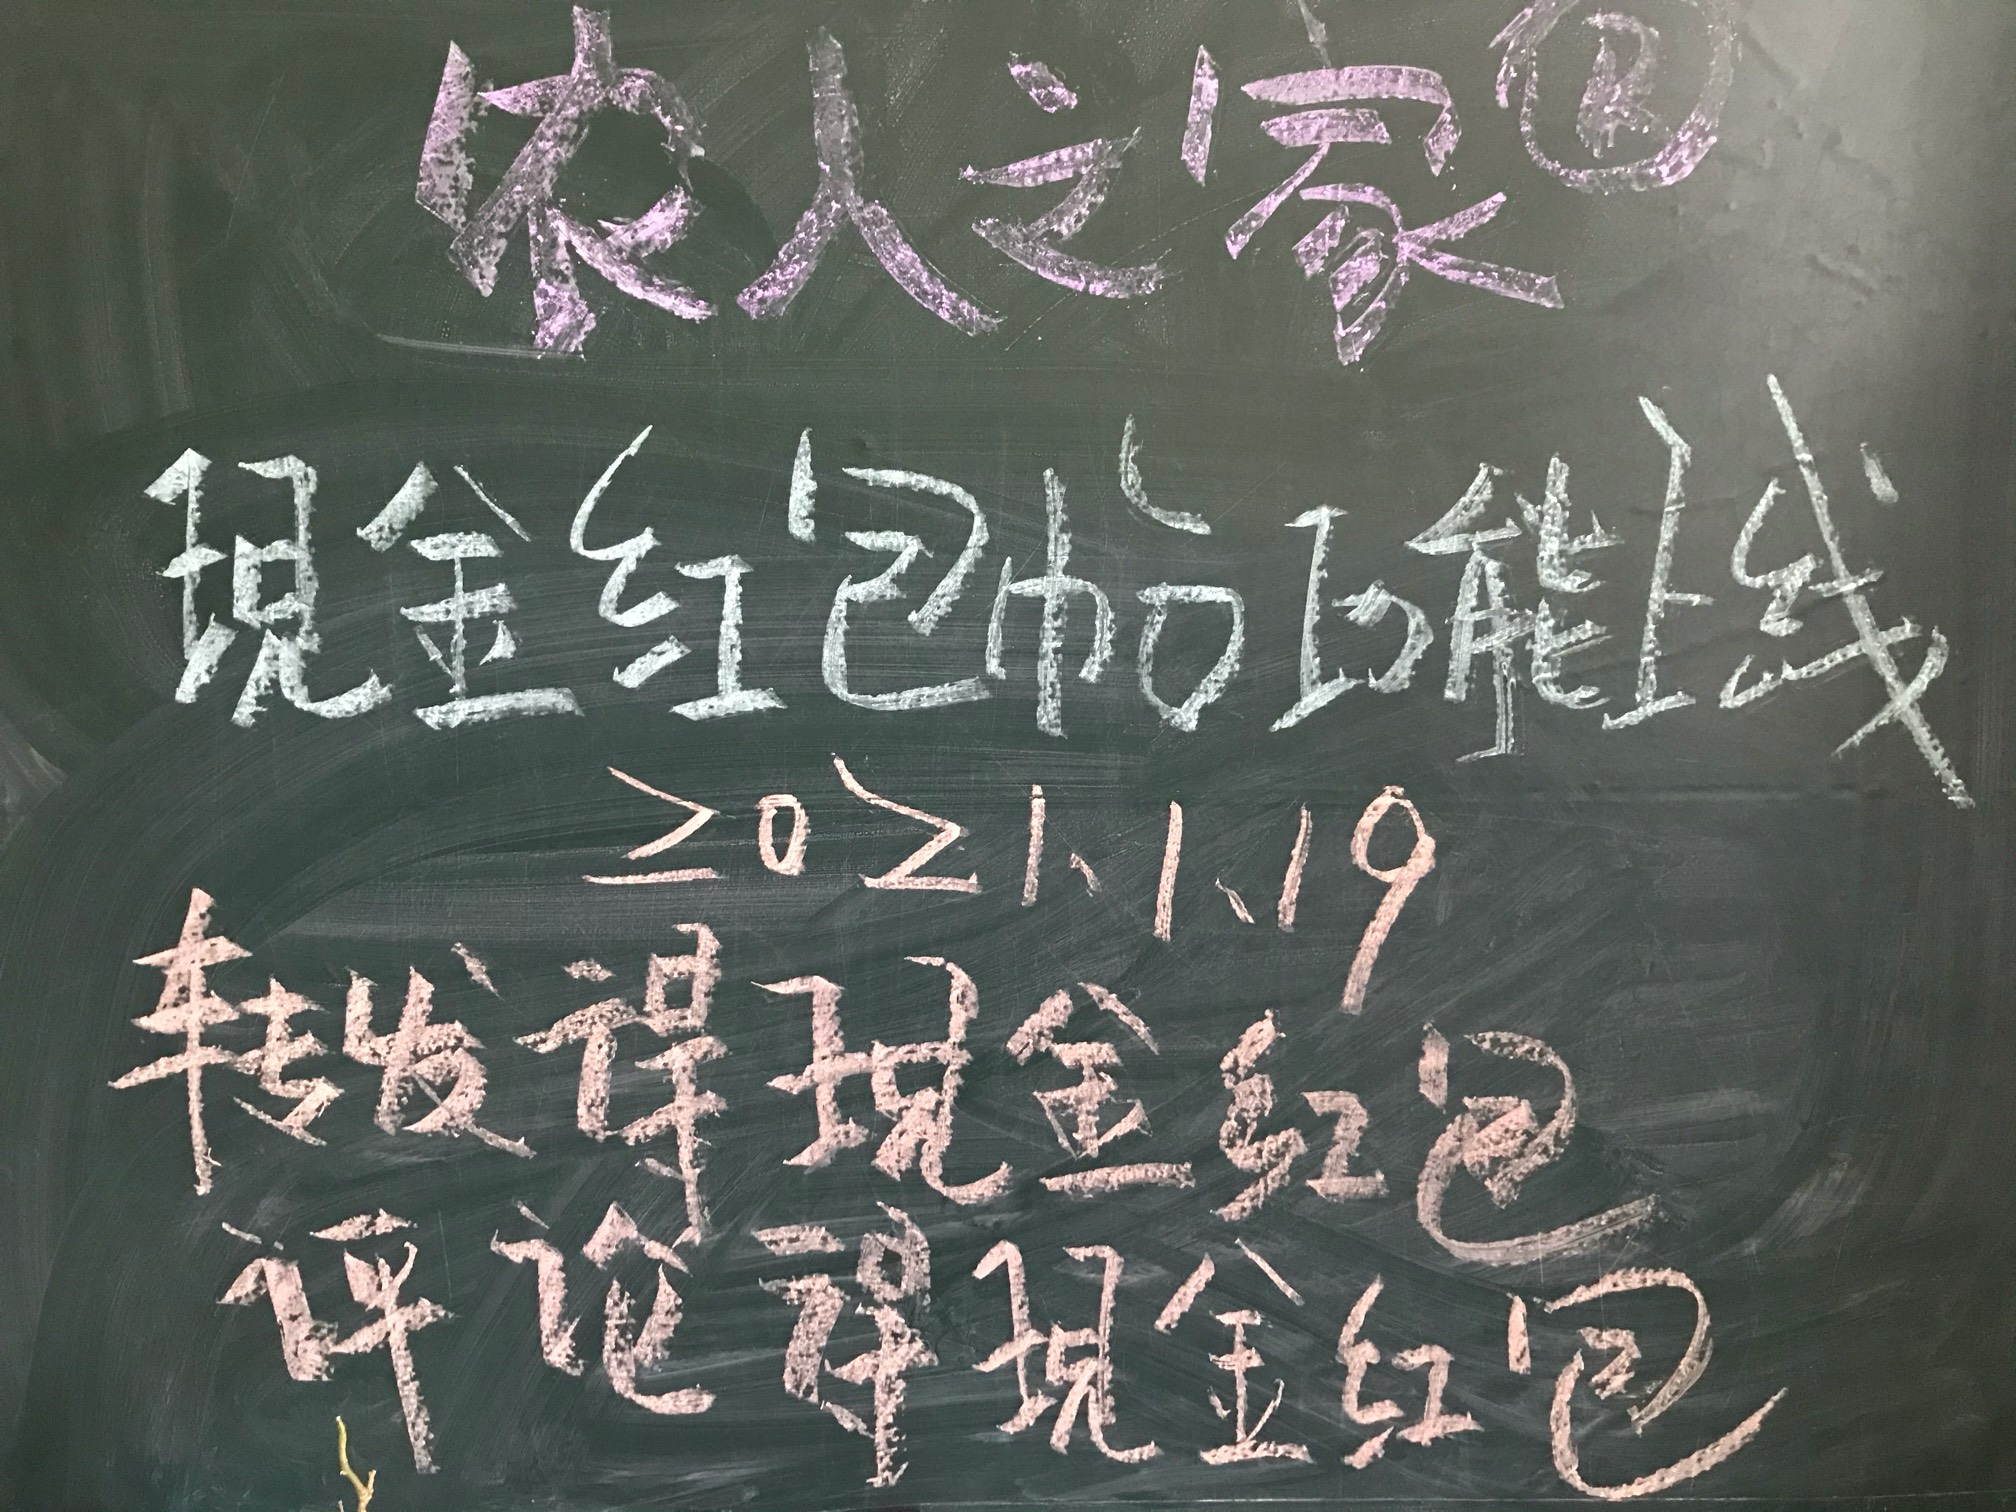 农人之家®
现金红包帖功能上线
2021.1.19
转发得现金红包
评论得现金红包